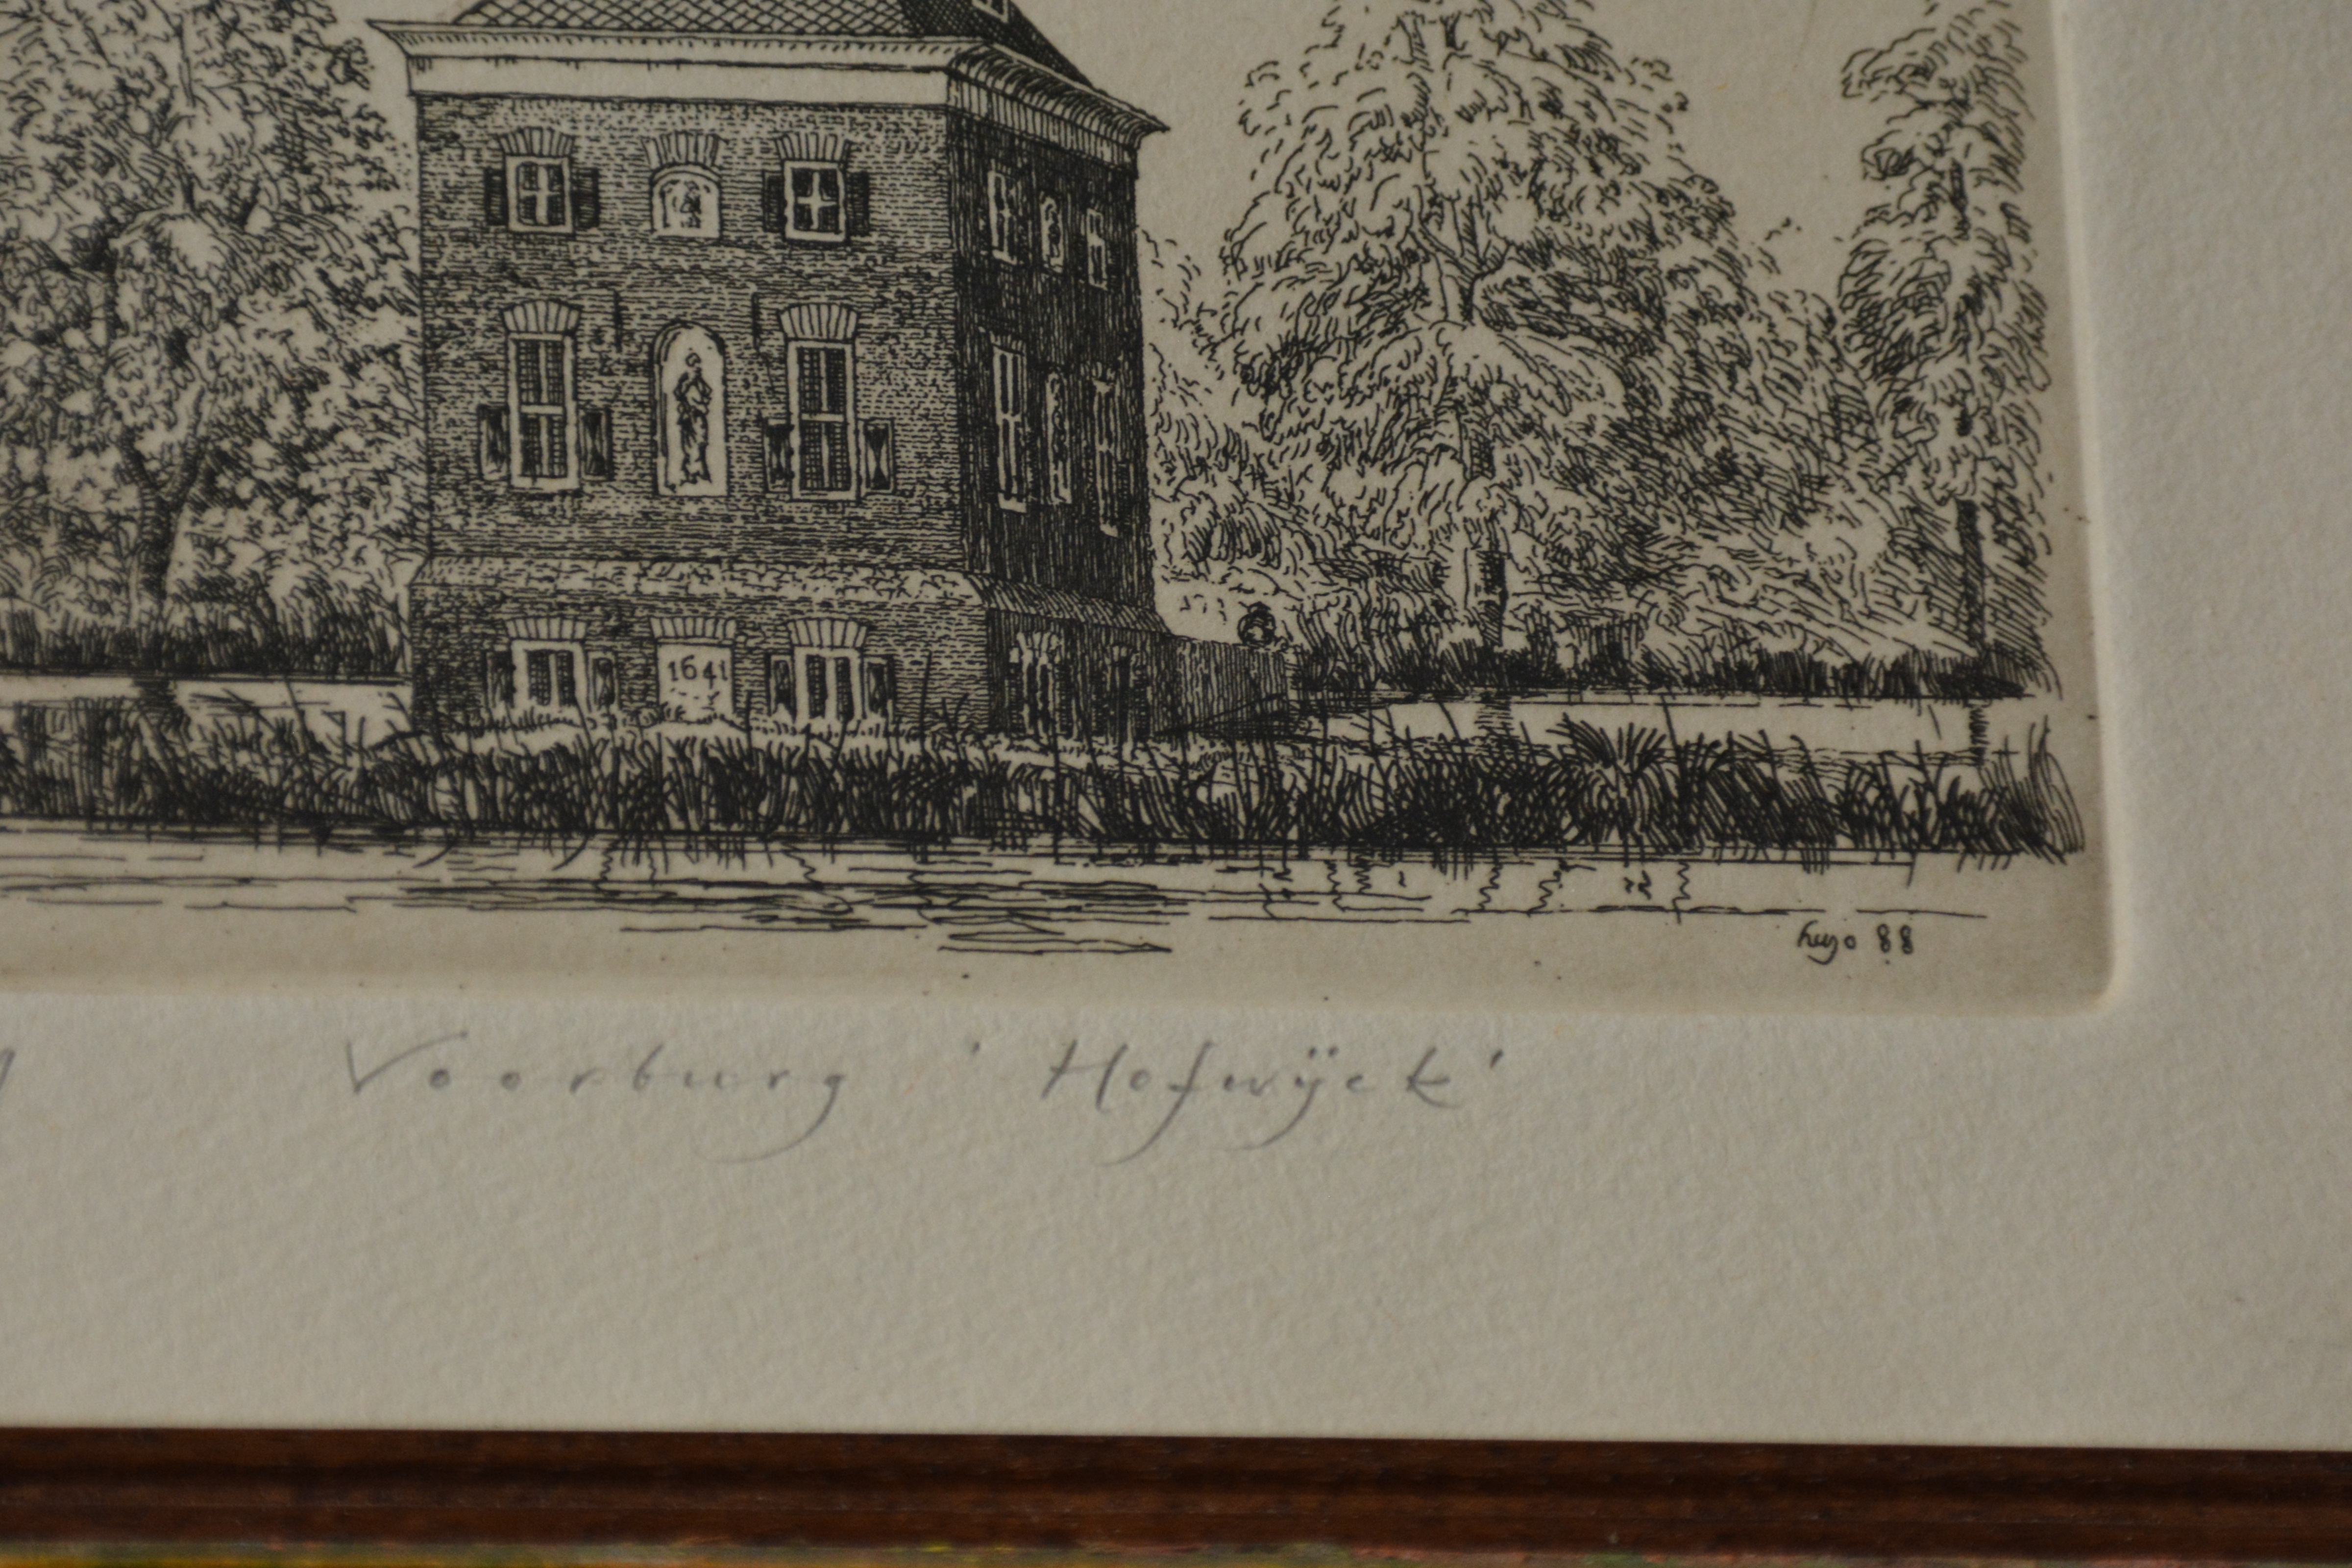 1641
hugo 88
Voorburg 'Hofwÿck'